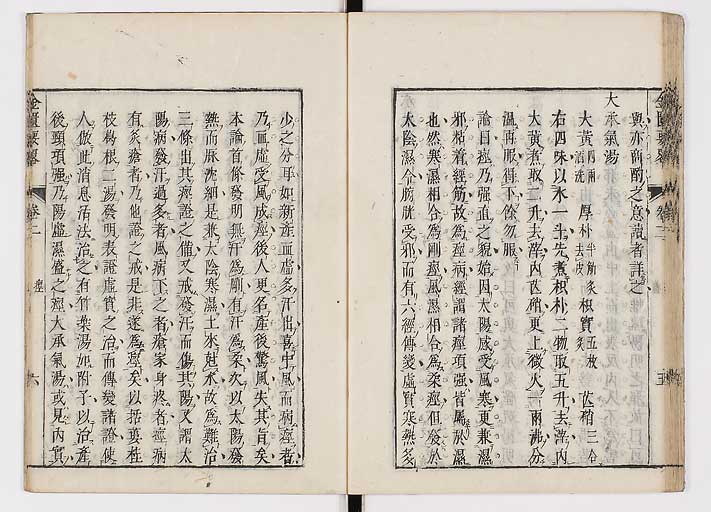 與亦商酌之意讀者詳之
大承氣湯
大黃四兩酒洗 厚朴半斤炙去皮 枳實五枚炙 芒硝三合
右四味以水一斗先煮枳朴二物取五升去滓內
大黃煮取二升去滓內芒硝更上微火一兩沸分
溫再服得下餘勿服
論曰痙乃強直之貌始因太陽感受風寒更兼濕
邪粘着經筋故為痙病經謂諸痙項強皆屬於濕
也然寒濕相合為剛痙風濕相合為柔痙但發於
太陰濕令膀胱受邪而有六經傳變虛實寒熱多
少之分耳如新產血虛多汗出喜中風而病痙者
乃血虛受風成痙後人更名產後驚風失其旨矣
本論首條發明無汗為剛有汗為柔次以太陽發
熱而脉沈細是兼太陰寒濕土來尅水故為難治
三條出其痙證之備又戒發汗而傷其陽又謂太
陽病發汗過多者風病下之者瘡家身疼者痙病
有灸瘡者乃他證之戒是非遂為痙矣以括蔞桂
枝葛根二湯發明表證虛實之治而傳變諸證使
人倣此消息活法治之有竹葉湯加附子以治產
後頸項強乃陽虛濕盛之痙大承氣湯或見內實
金匱要畧 卷二 痙 六